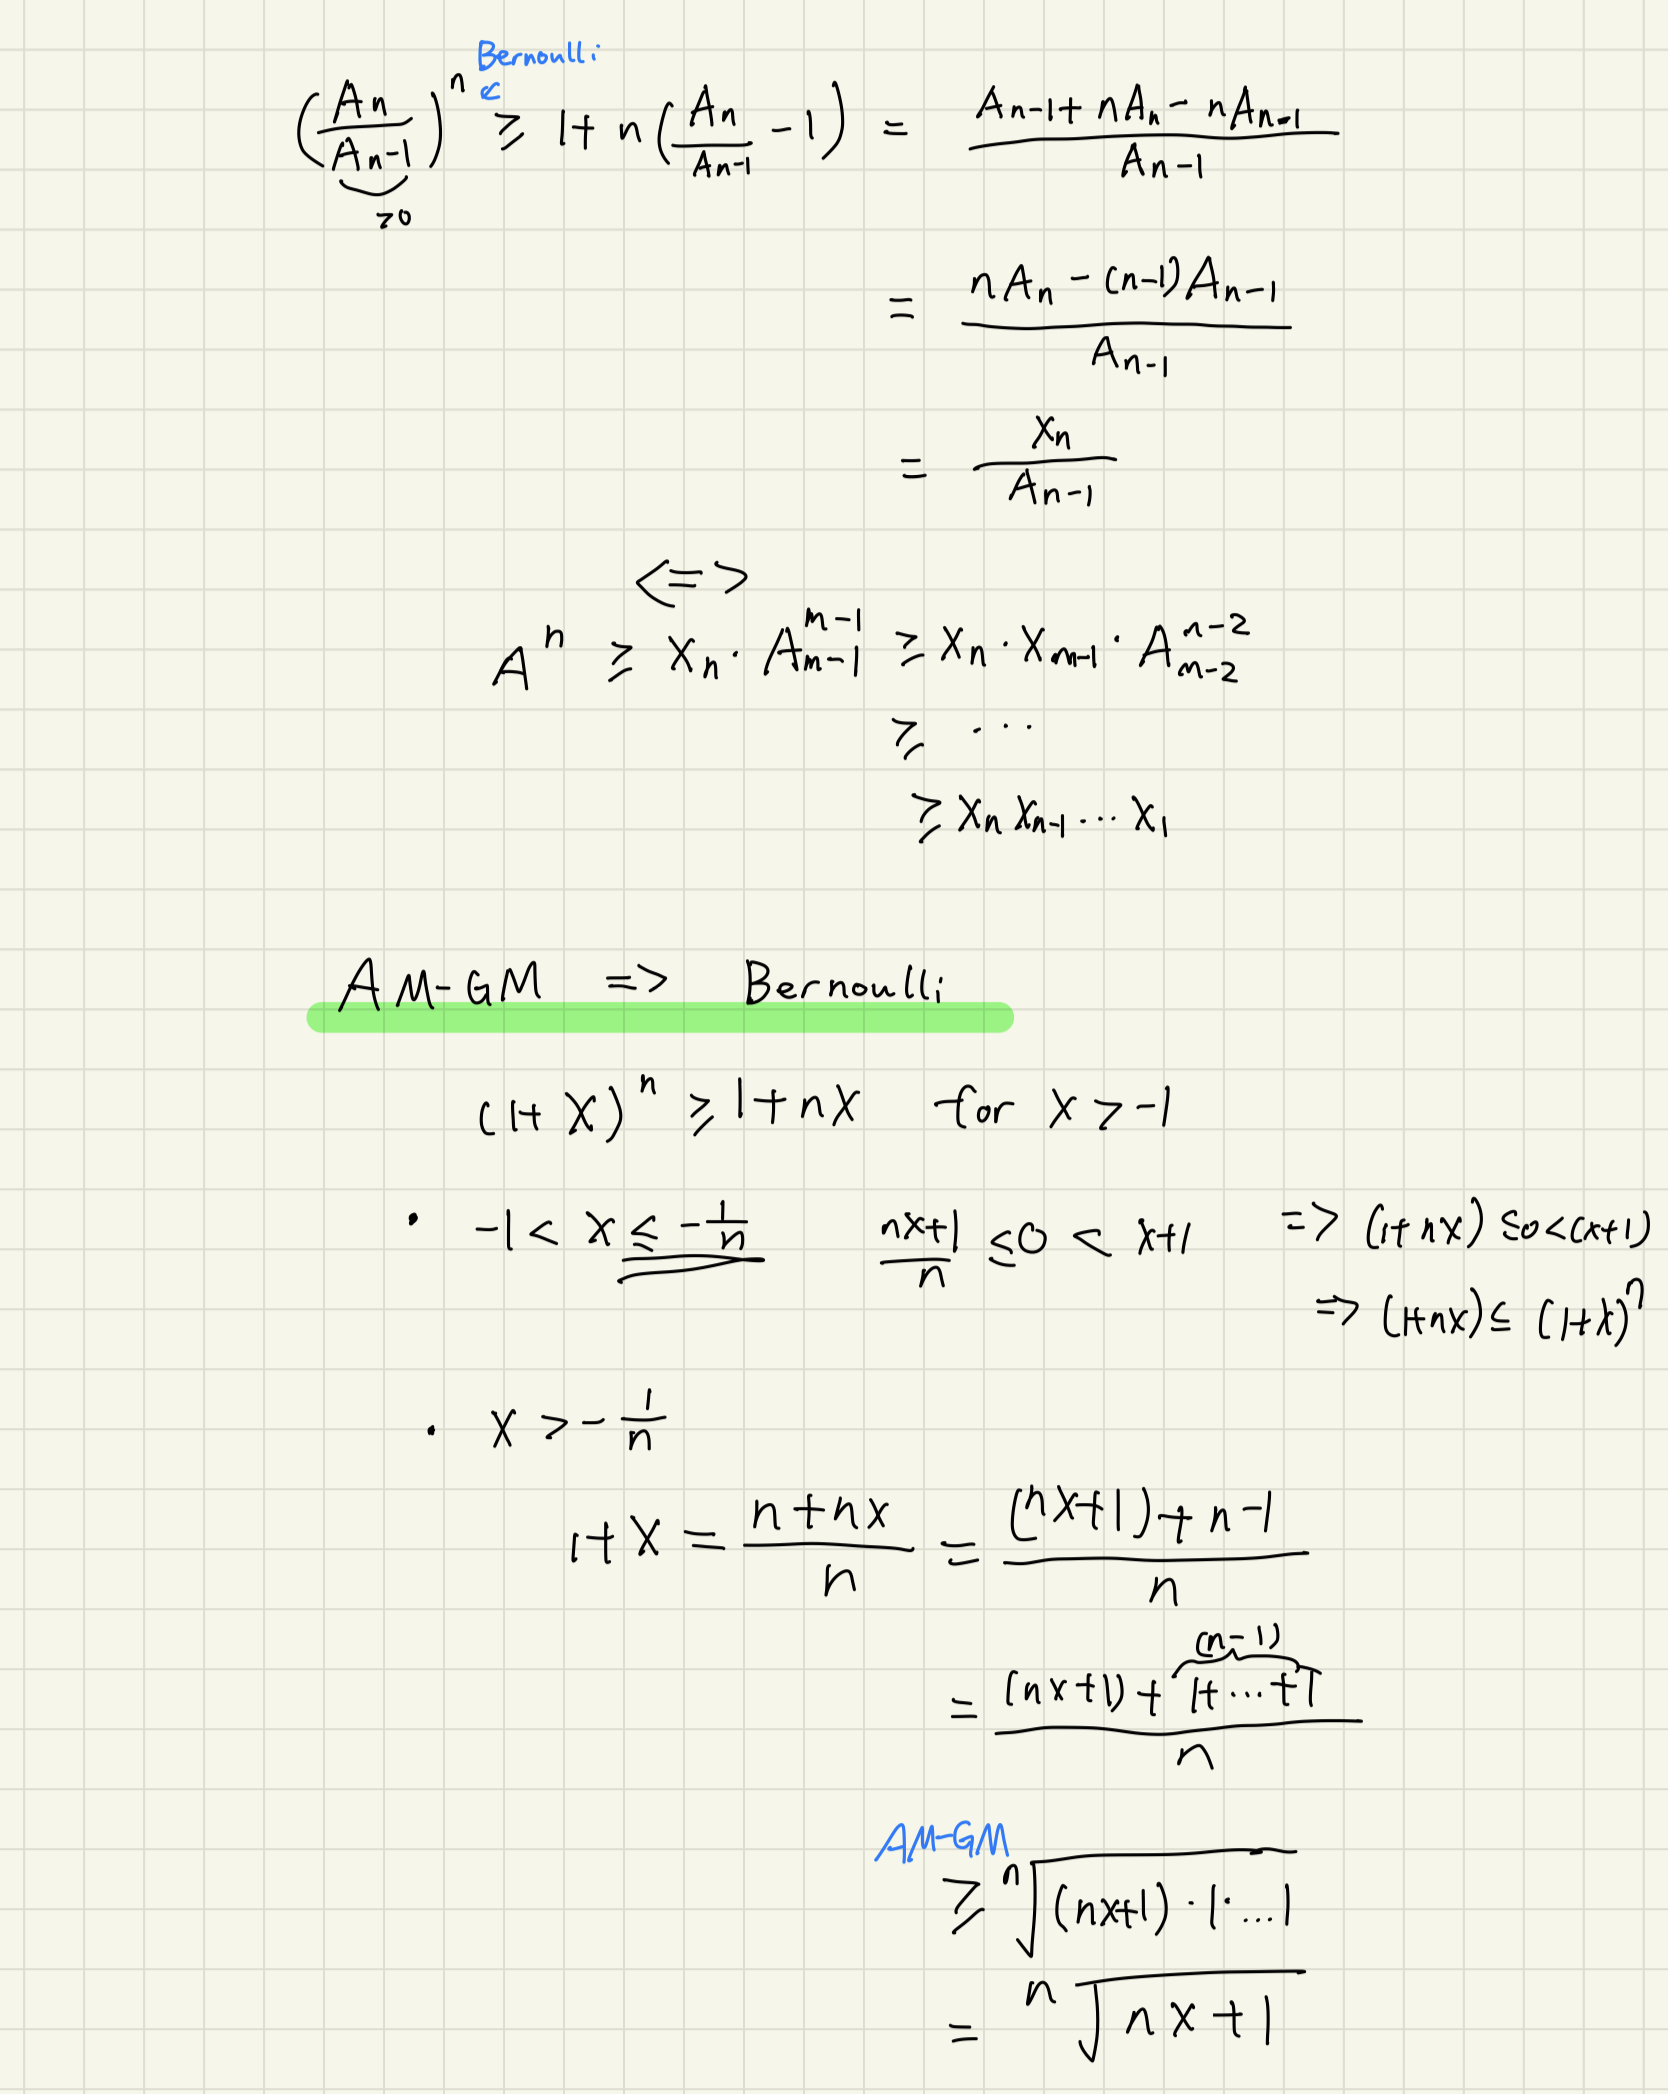 Bernoulli
(A_n / A_{n-1})^n ≥ 1 + n(A_n / A_{n-1} - 1) = (A_{n-1} + nA_n - nA_{n-1}) / A_{n-1}
>0
= (nA_n - (n-1)A_{n-1}) / A_{n-1}
= x_n / A_{n-1}
<=>
A^n ≥ x_n · A_{n-1}^{n-1} ≥ x_n · x_{n-1} · A_{n-2}^{n-2}
≥ ...
≥ x_n x_{n-1} ... x_1
AM-GM => Bernoulli
(1+x)^n ≥ 1+nx for x > -1
· -1 < x ≤ -1/n (nx+1)/n ≤ 0 < x+1 => (1+nx) ≤ 0 < (x+1)
=> (1+nx) ≤ (1+x)^n
· x > -1/n
1+x = (n+nx)/n = ((nx+1)+n-1)/n
(n-1)
= ((nx+1) + 1+...+1)/n
AM-GM
≥ ⁿ√((nx+1)·1·...1)
= ⁿ√(nx+1)